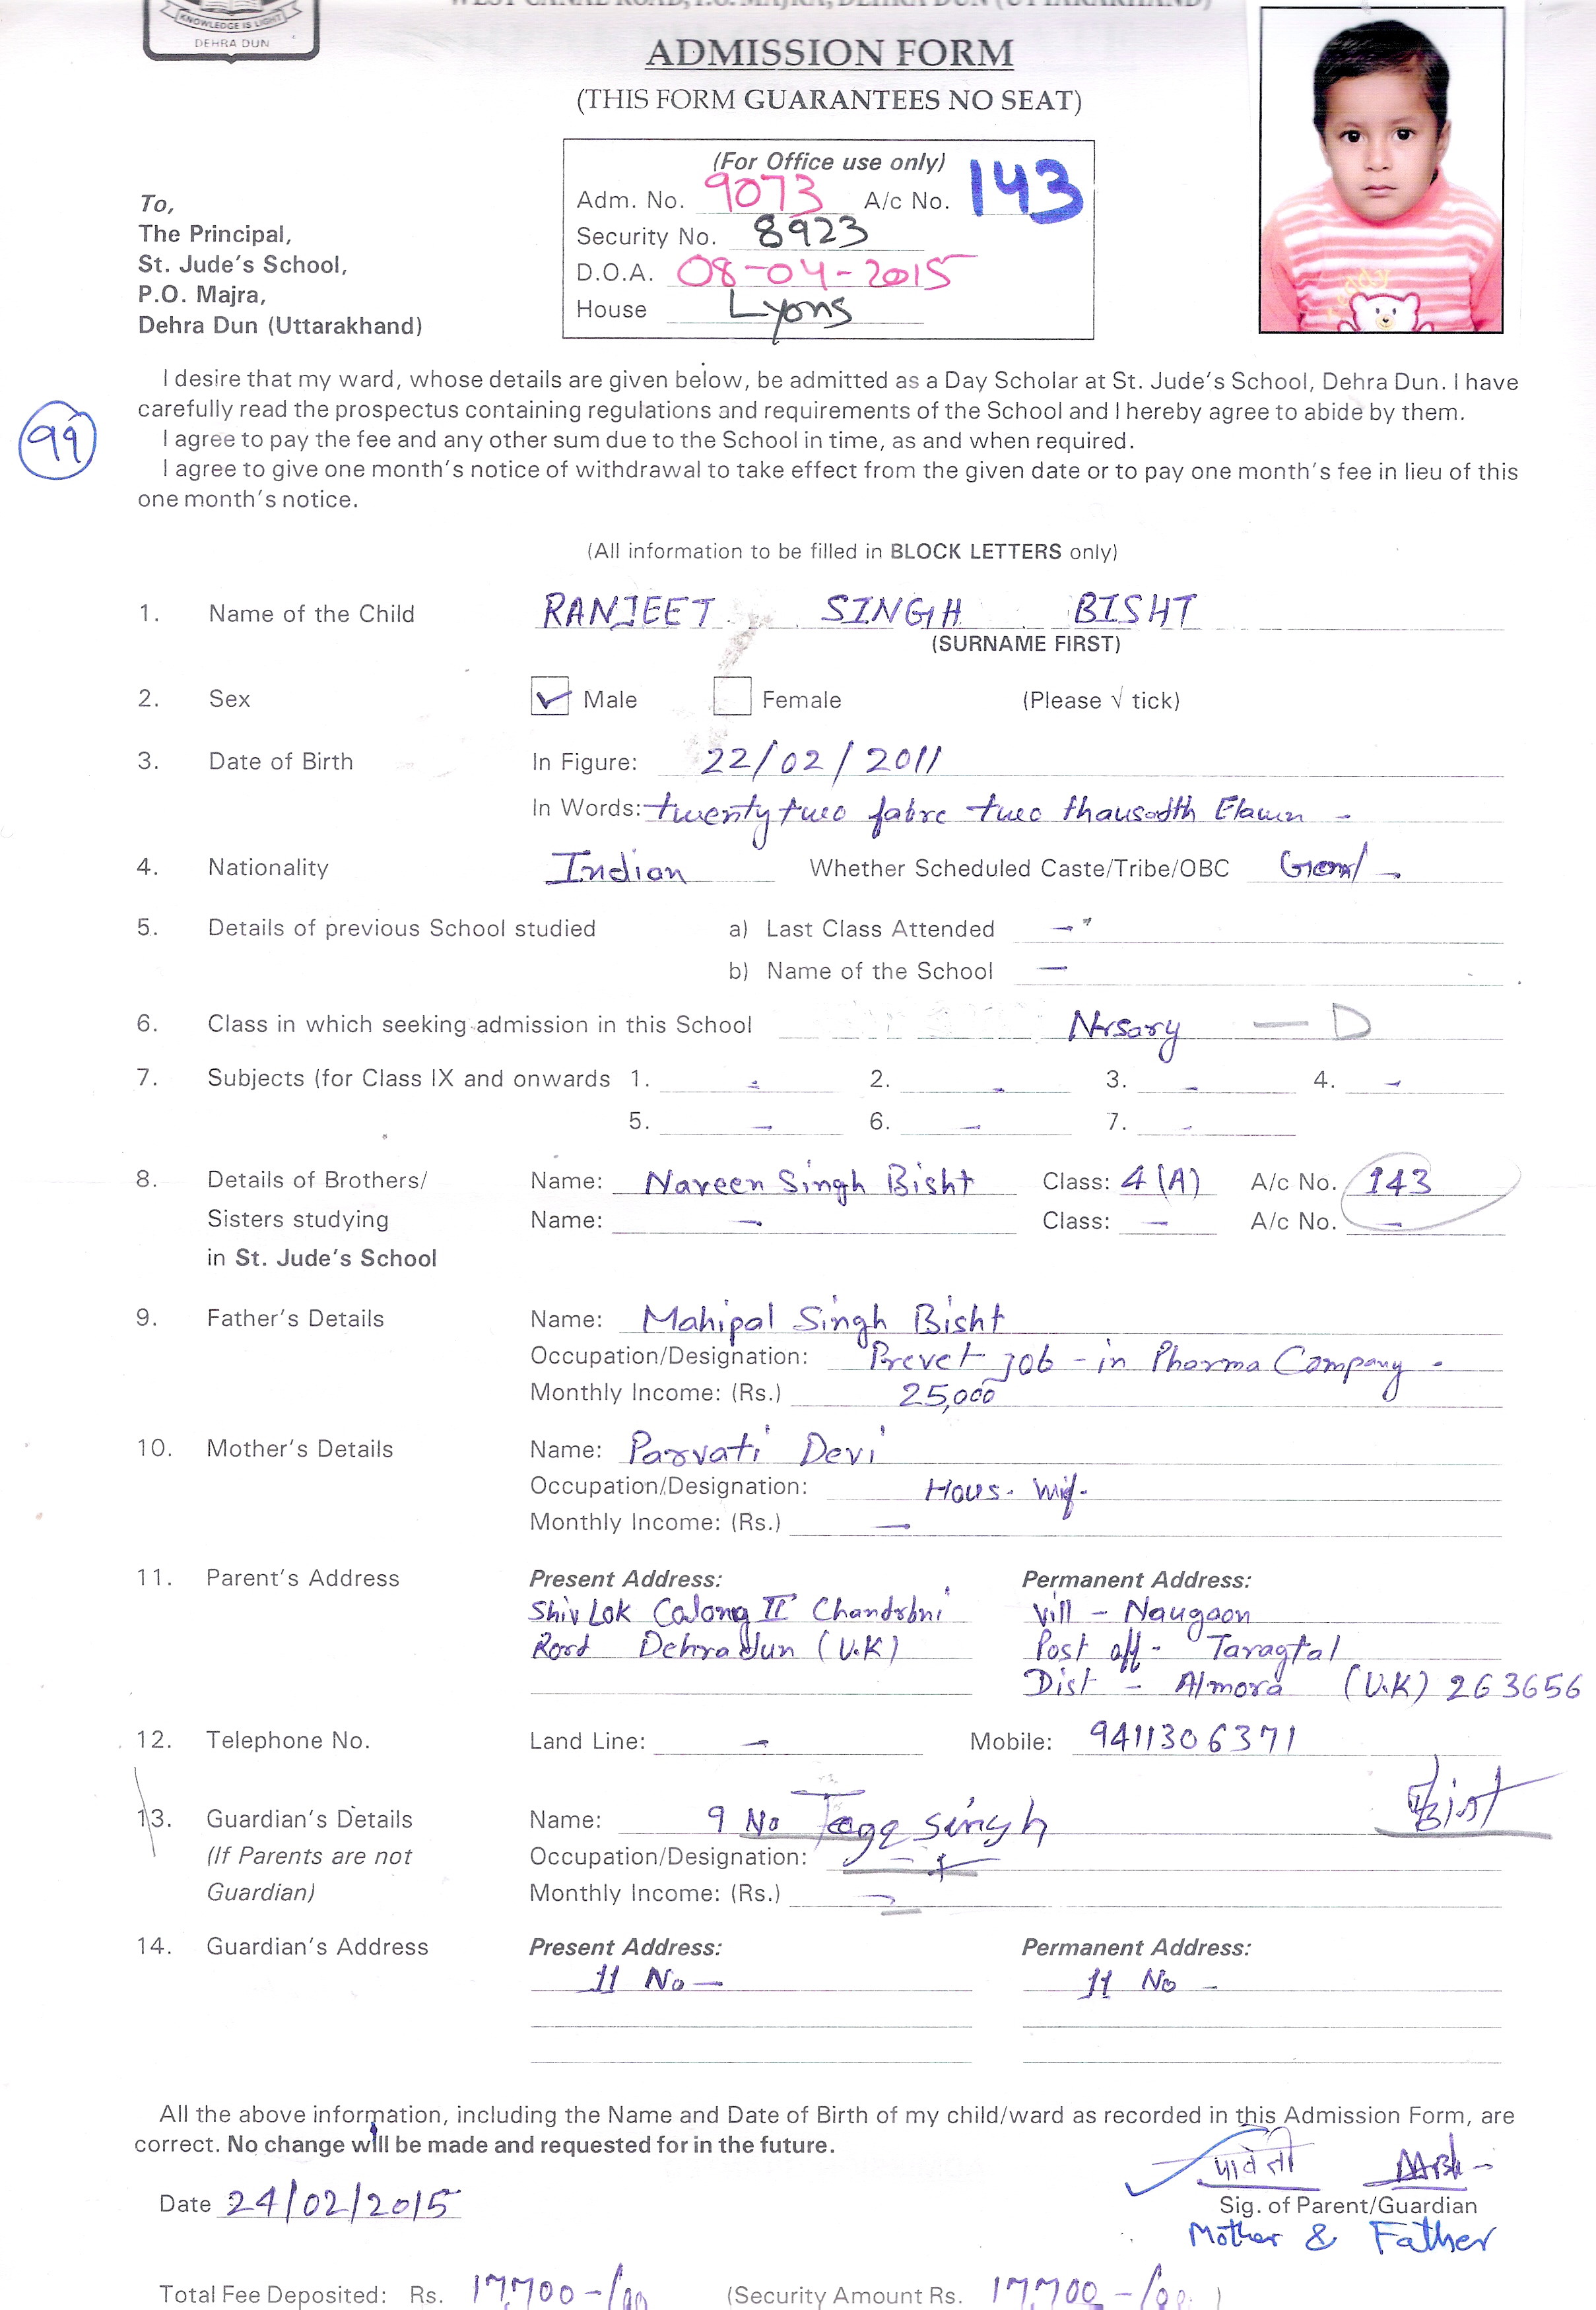 KNOWLEDGE IS LIGHT
DEHRA DUN
WEST CANAL ROAD, P.O. MAJRA, DEHRA DUN (UTTARAKHAND)
ADMISSION FORM
(THIS FORM GUARANTEES NO SEAT)
(For Office use only)
Adm. No. 9073 A/c No. 143
Security No. 8923
D.O.A. 08-04-2015
House Lyons
To,
The Principal,
St. Jude's School,
P.O. Majra,
Dehra Dun (Uttarakhand)
I desire that my ward, whose details are given below, be admitted as a Day Scholar at St. Jude's School, Dehra Dun. I have
carefully read the prospectus containing regulations and requirements of the School and I hereby agree to abide by them.
99
I agree to pay the fee and any other sum due to the School in time, as and when required.
I agree to give one month's notice of withdrawal to take effect from the given date or to pay one month's fee in lieu of this
one month's notice.
(All information to be filled in BLOCK LETTERS only)
1. Name of the Child RANJEET SINGH BISHT
(SURNAME FIRST)
2. Sex ✓ Male Female (Please √ tick)
3. Date of Birth In Figure: 22/02/2011
In Words: twenty two fabre two thausodth Elawn -
4. Nationality Indian Whether Scheduled Caste/Tribe/OBC
5. Details of previous School studied a) Last Class Attended -
b) Name of the School -
6. Class in which seeking admission in this School Nrsary - D
7. Subjects (for Class IX and onwards 1. - 2. - 3. - 4. -
5. - 6. - 7. -
8. Details of Brothers/ Name: Naveen Singh Bisht Class: 4 (A) A/c No. 143
Sisters studying Name: - Class: - A/c No. -
in St. Jude's School
9. Father's Details Name: Mahipal Singh Bisht
Occupation/Designation: Prevet job - in Pharma Company -
Monthly Income: (Rs.) 25,000
10. Mother's Details Name: Parvati Devi
Occupation/Designation: Hous. wif.
Monthly Income: (Rs.) -
11. Parent's Address Present Address: Permanent Address:
Shiv Lok Calony II Chandrbni Vill - Naugaon
Rord Dehradun (U.K) Post off - Taragtal
Dist - Almora (U.K) 263656
12. Telephone No. Land Line: - Mobile: 9411306371
13. Guardian's Details Name: 9 No singh Bist
(If Parents are not Occupation/Designation: -
Guardian) Monthly Income: (Rs.) -
14. Guardian's Address Present Address: Permanent Address:
11 No - 11 No -
All the above information, including the Name and Date of Birth of my child/ward as recorded in this Admission Form, are
correct. No change will be made and requested for in the future.
पार्वती
Date 24/02/2015 Sig. of Parent/Guardian
Mother & Father
Total Fee Deposited: Rs. 17,700-/ (Security Amount Rs. 17,700-/ )